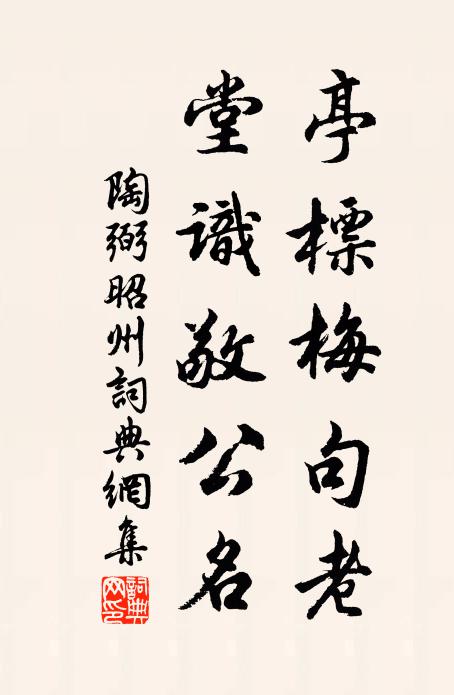 亭標梅句老
堂識敬公名
陶弼昭州詞典網集
詞典网印